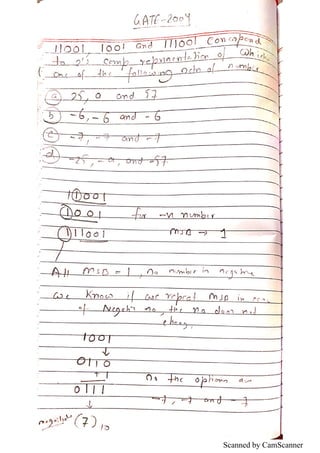 GATE-2004
11001, 1001 and 111001 correspond
to 2's comp representation of which
one of the following sets of number
(a) 25, 9 and 57
(b) -6, -6 and -6
(c) -7, -7 and -7
(d) -25, -9, and -57
11001
1001 for -ve number
111001 MSB → 1
All MSB = 1, no number is negative
we know if we repeat MSB in case
of Negative no, the no does not
change
1001
↓
0110
+1
0111 options are
↓ -7, -7 and -7
negative (7)10
Scanned by CamScanner